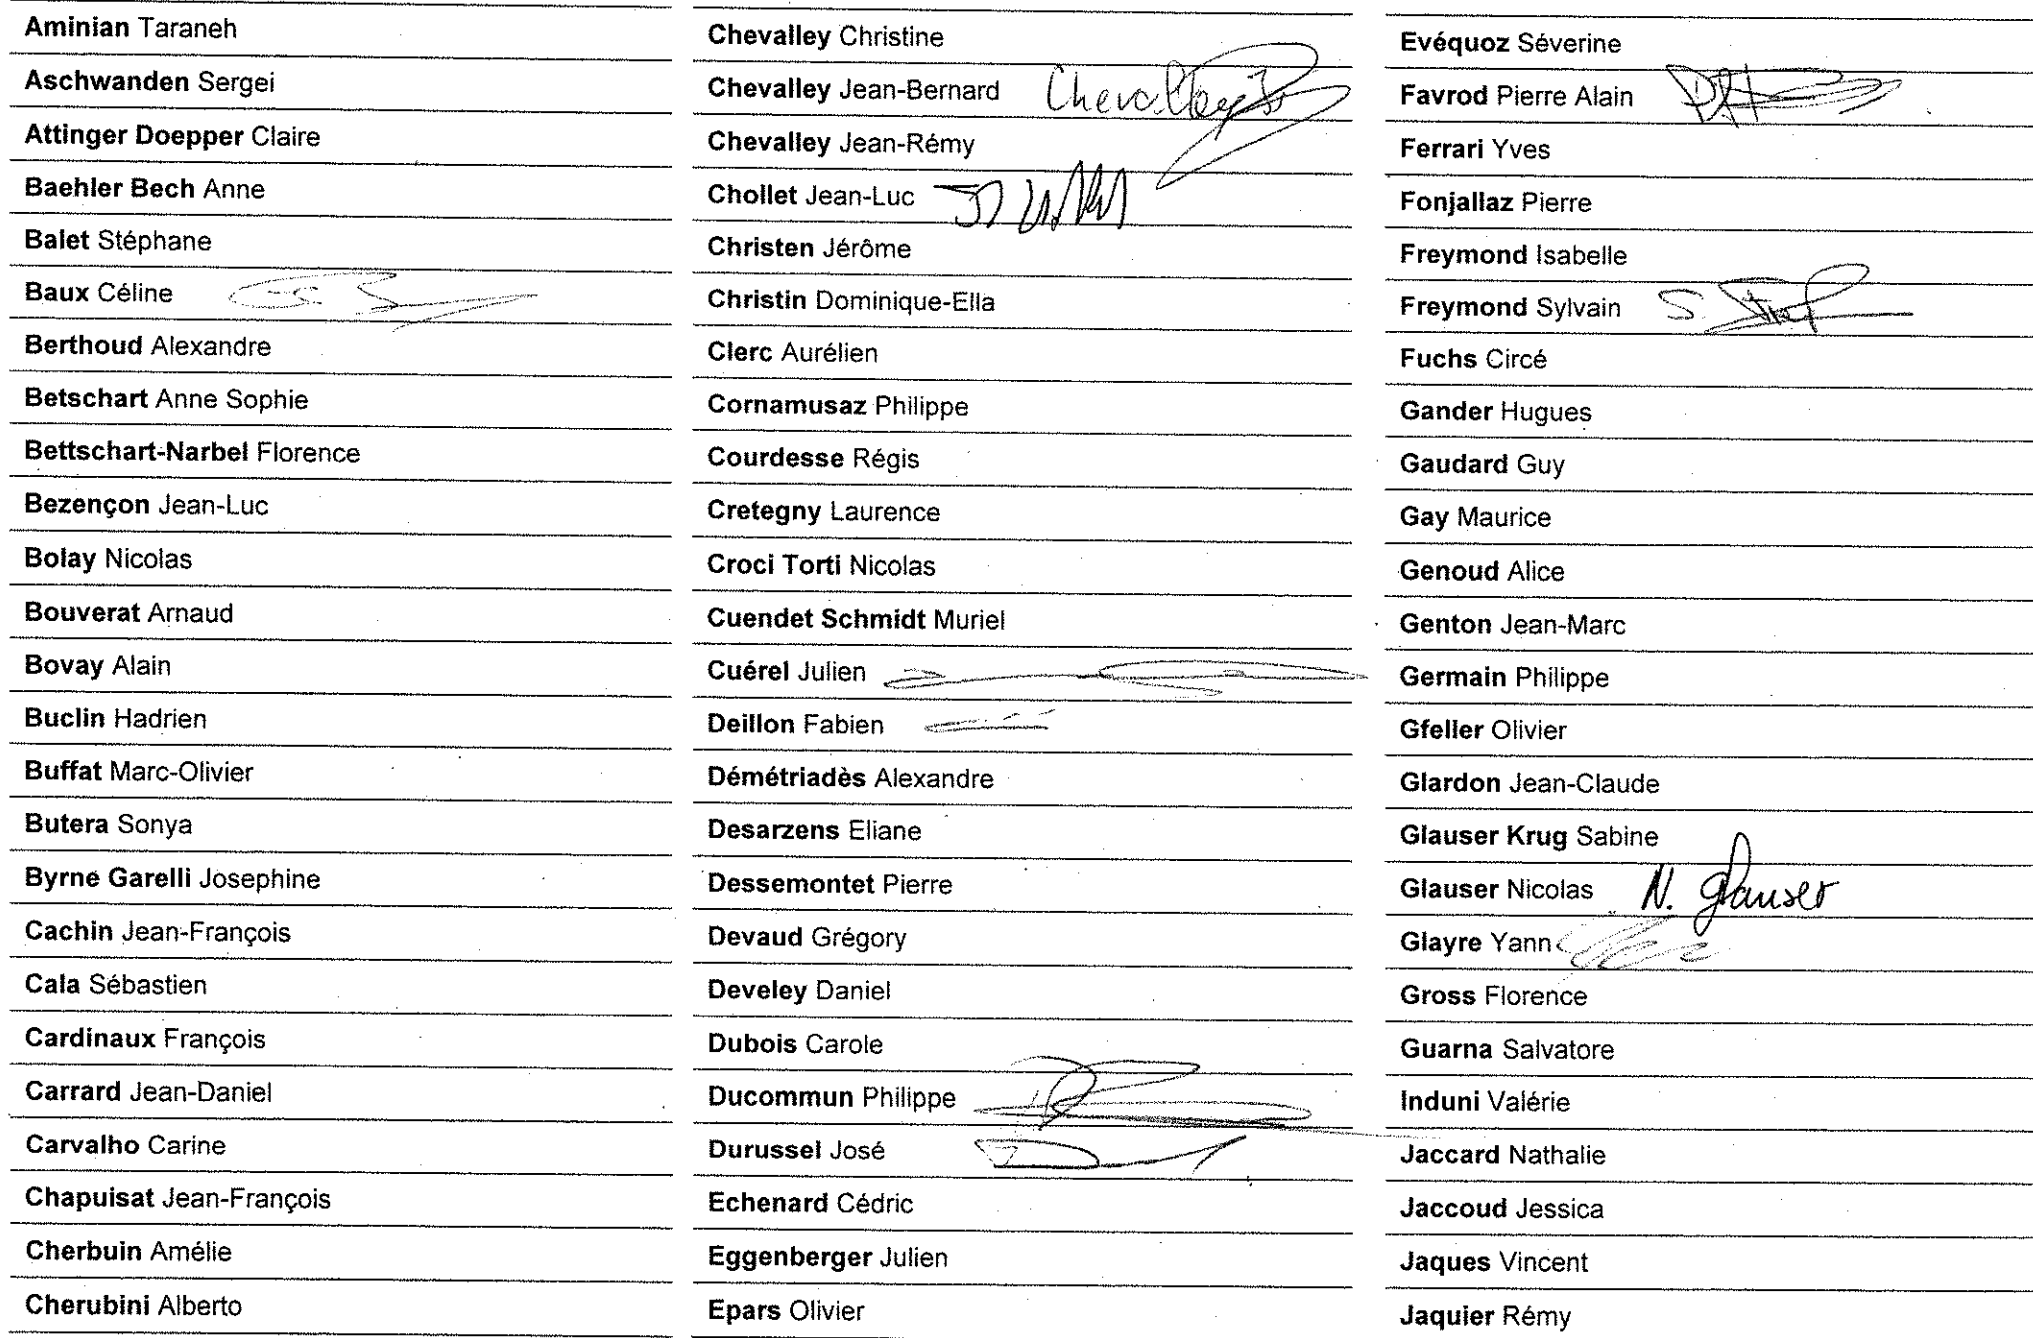 Aminian Taraneh
Aschwanden Sergei
Attinger Doepper Claire
Baehler Bech Anne
Balet Stéphane
Baux Céline
Berthoud Alexandre
Betschart Anne Sophie
Bettschart-Narbel Florence
Bezençon Jean-Luc
Bolay Nicolas
Bouverat Arnaud
Bovay Alain
Buclin Hadrien
Buffat Marc-Olivier
Butera Sonya
Byrne Garelli Josephine
Cachin Jean-François
Cala Sébastien
Cardinaux François
Carrard Jean-Daniel
Carvalho Carine
Chapuisat Jean-François
Cherbuin Amélie
Cherubini Alberto
Chevalley Christine
Chevalley Jean-Bernard Chevalley
Chevalley Jean-Rémy
Chollet Jean-Luc
Christen Jérôme
Christin Dominique-Ella
Clerc Aurélien
Cornamusaz Philippe
Courdesse Régis
Cretegny Laurence
Croci Torti Nicolas
Cuendet Schmidt Muriel
Cuérel Julien
Deillon Fabien
Démétriadès Alexandre
Desarzens Eliane
Dessemontet Pierre
Devaud Grégory
Develey Daniel
Dubois Carole
Ducommun Philippe
Durussel José
Echenard Cédric
Eggenberger Julien
Epars Olivier
Evéquoz Séverine
Favrod Pierre Alain
Ferrari Yves
Fonjallaz Pierre
Freymond Isabelle
Freymond Sylvain
Fuchs Circé
Gander Hugues
Gaudard Guy
Gay Maurice
Genoud Alice
Genton Jean-Marc
Germain Philippe
Gfeller Olivier
Glardon Jean-Claude
Glauser Krug Sabine
Glauser Nicolas N. Glauser
Glayre Yann
Gross Florence
Guarna Salvatore
Induni Valérie
Jaccard Nathalie
Jaccoud Jessica
Jaques Vincent
Jaquier Rémy